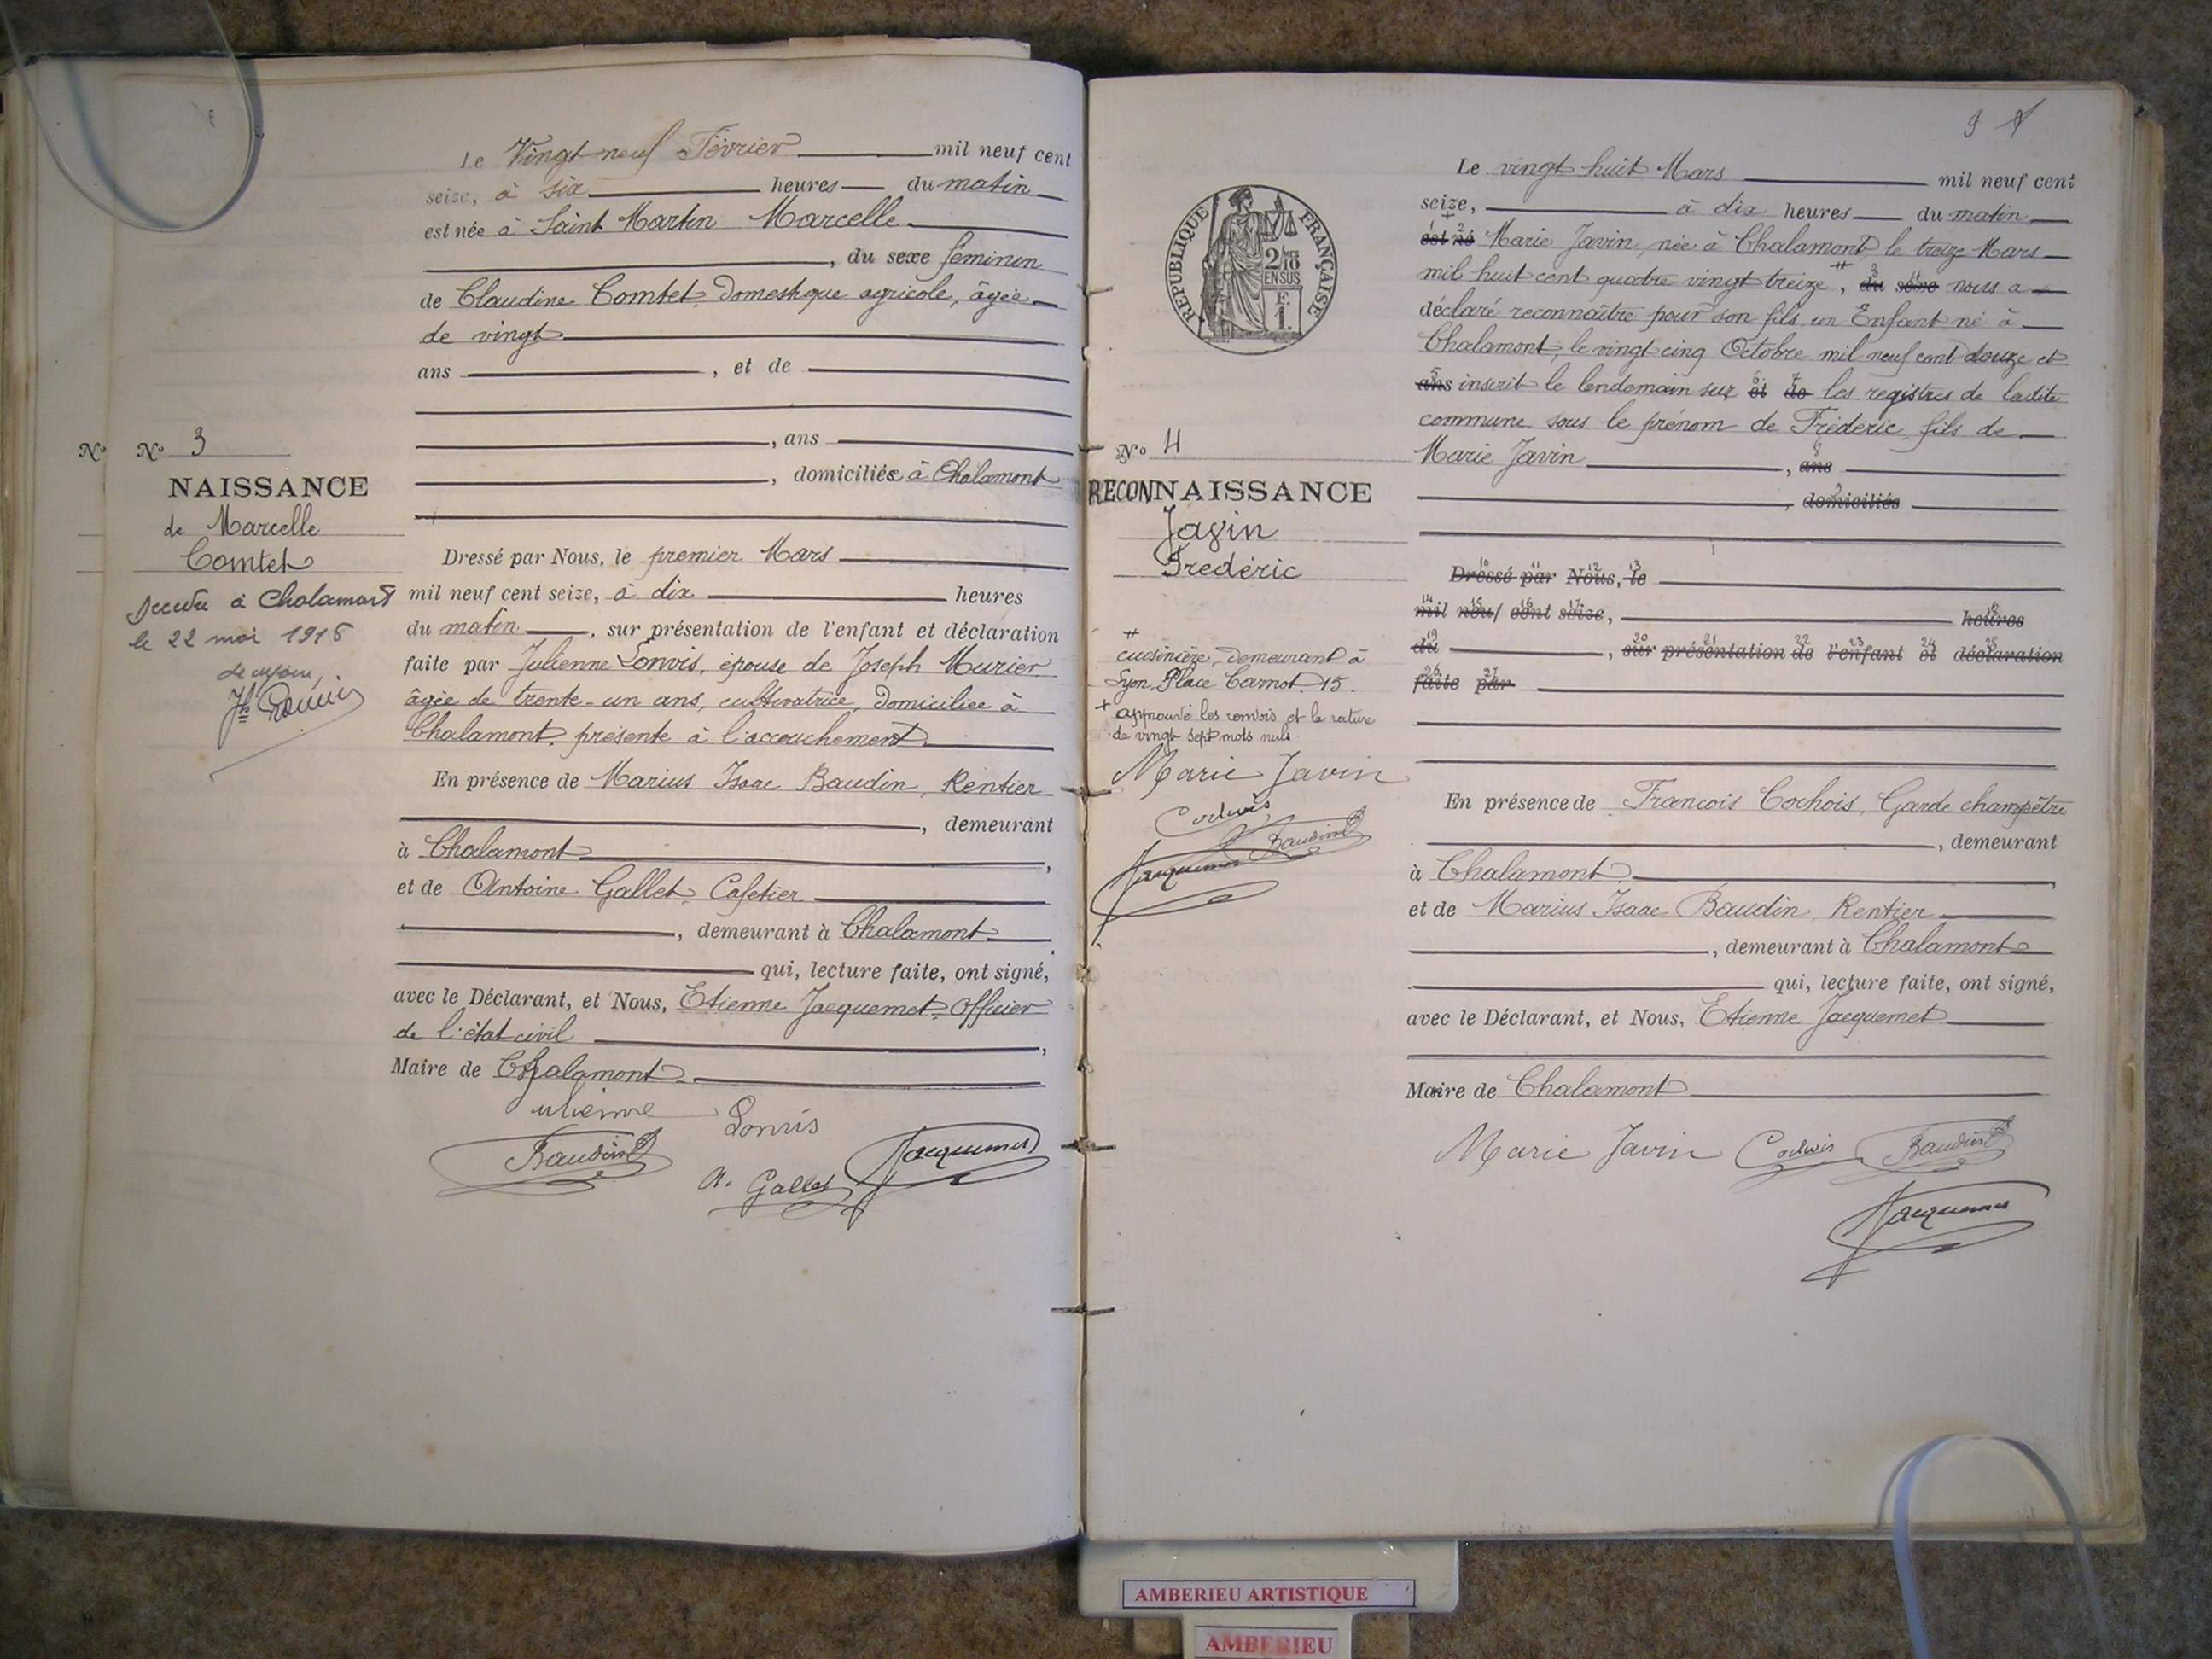 Le Vingt neuf Février mil neuf cent
seize, à six heures du matin
est née à Saint Martin Marcelle
, du sexe féminin
de Claudine Comtet, domestique agricole, âgée
de vingt
ans , et de
, ans
, domiciliée à Chalamont
Nº Nº 3
NAISSANCE
de Marcelle
Comtet
Décédée à Chalamont
le 22 mai 1916
Dressé par Nous, le premier Mars
mil neuf cent seize, à dix heures
du matin , sur présentation de l'enfant et déclaration
faite par Julienne Lonvis, épouse de Joseph Murier
âgée de trente-un ans, cultivatrice, domiciliée à
Chalamont, présente à l'accouchement
En présence de Marius Isaac Baudin, Rentier
, demeurant
à Chalamont ,
et de Antoine Gallet, Cafetier
, demeurant à Chalamont
qui, lecture faite, ont signé,
avec le Déclarant, et Nous, Etienne Jacquemet, Officier
de l'état civil ,
Maire de Chalamont
Julienne Lonvis
Baudin
A. Gallet Jacquemet
9
REPUBLIQUE FRANÇAISE
2/10
EN SUS
F.
1.
Le vingt huit Mars mil neuf cent
seize, à dix heures du matin
est né Marie Javin, née à Chalamont, le treize Mars
mil huit cent quatre vingt treize #, du sexe nous a
déclaré reconnaître pour son fils un Enfant né à
Chalamont, le vingt cinq Octobre mil neuf cent douze et
ans inscrit le lendemain sur et de les registres de ladite
commune sous le prénom de Fréderic, fils de
Marie Javin , ans
, domiciliés
Nº 4
RECONNAISSANCE
Javin
Frederic
#
cuisinière, demeurant à
Lyon, Place Carnot 15.
+ approuvé les renvois et la rature
de vingt sept mots nuls
Marie Javin
Baudin
Jacquemet
Dressé par Nous, le
mil neuf cent seize, heures
du , sur présentation de l'enfant et déclaration
faite par
En présence de François Cochois, Garde champêtre
, demeurant
à Chalamont ,
et de Marius Isaac Baudin, Rentier
, demeurant à Chalamont
qui, lecture faite, ont signé,
avec le Déclarant, et Nous, Etienne Jacquemet
Maire de Chalamont
Marie Javin Baudin
Jacquemet
AMBERIEU ARTISTIQUE
AMBERIEU